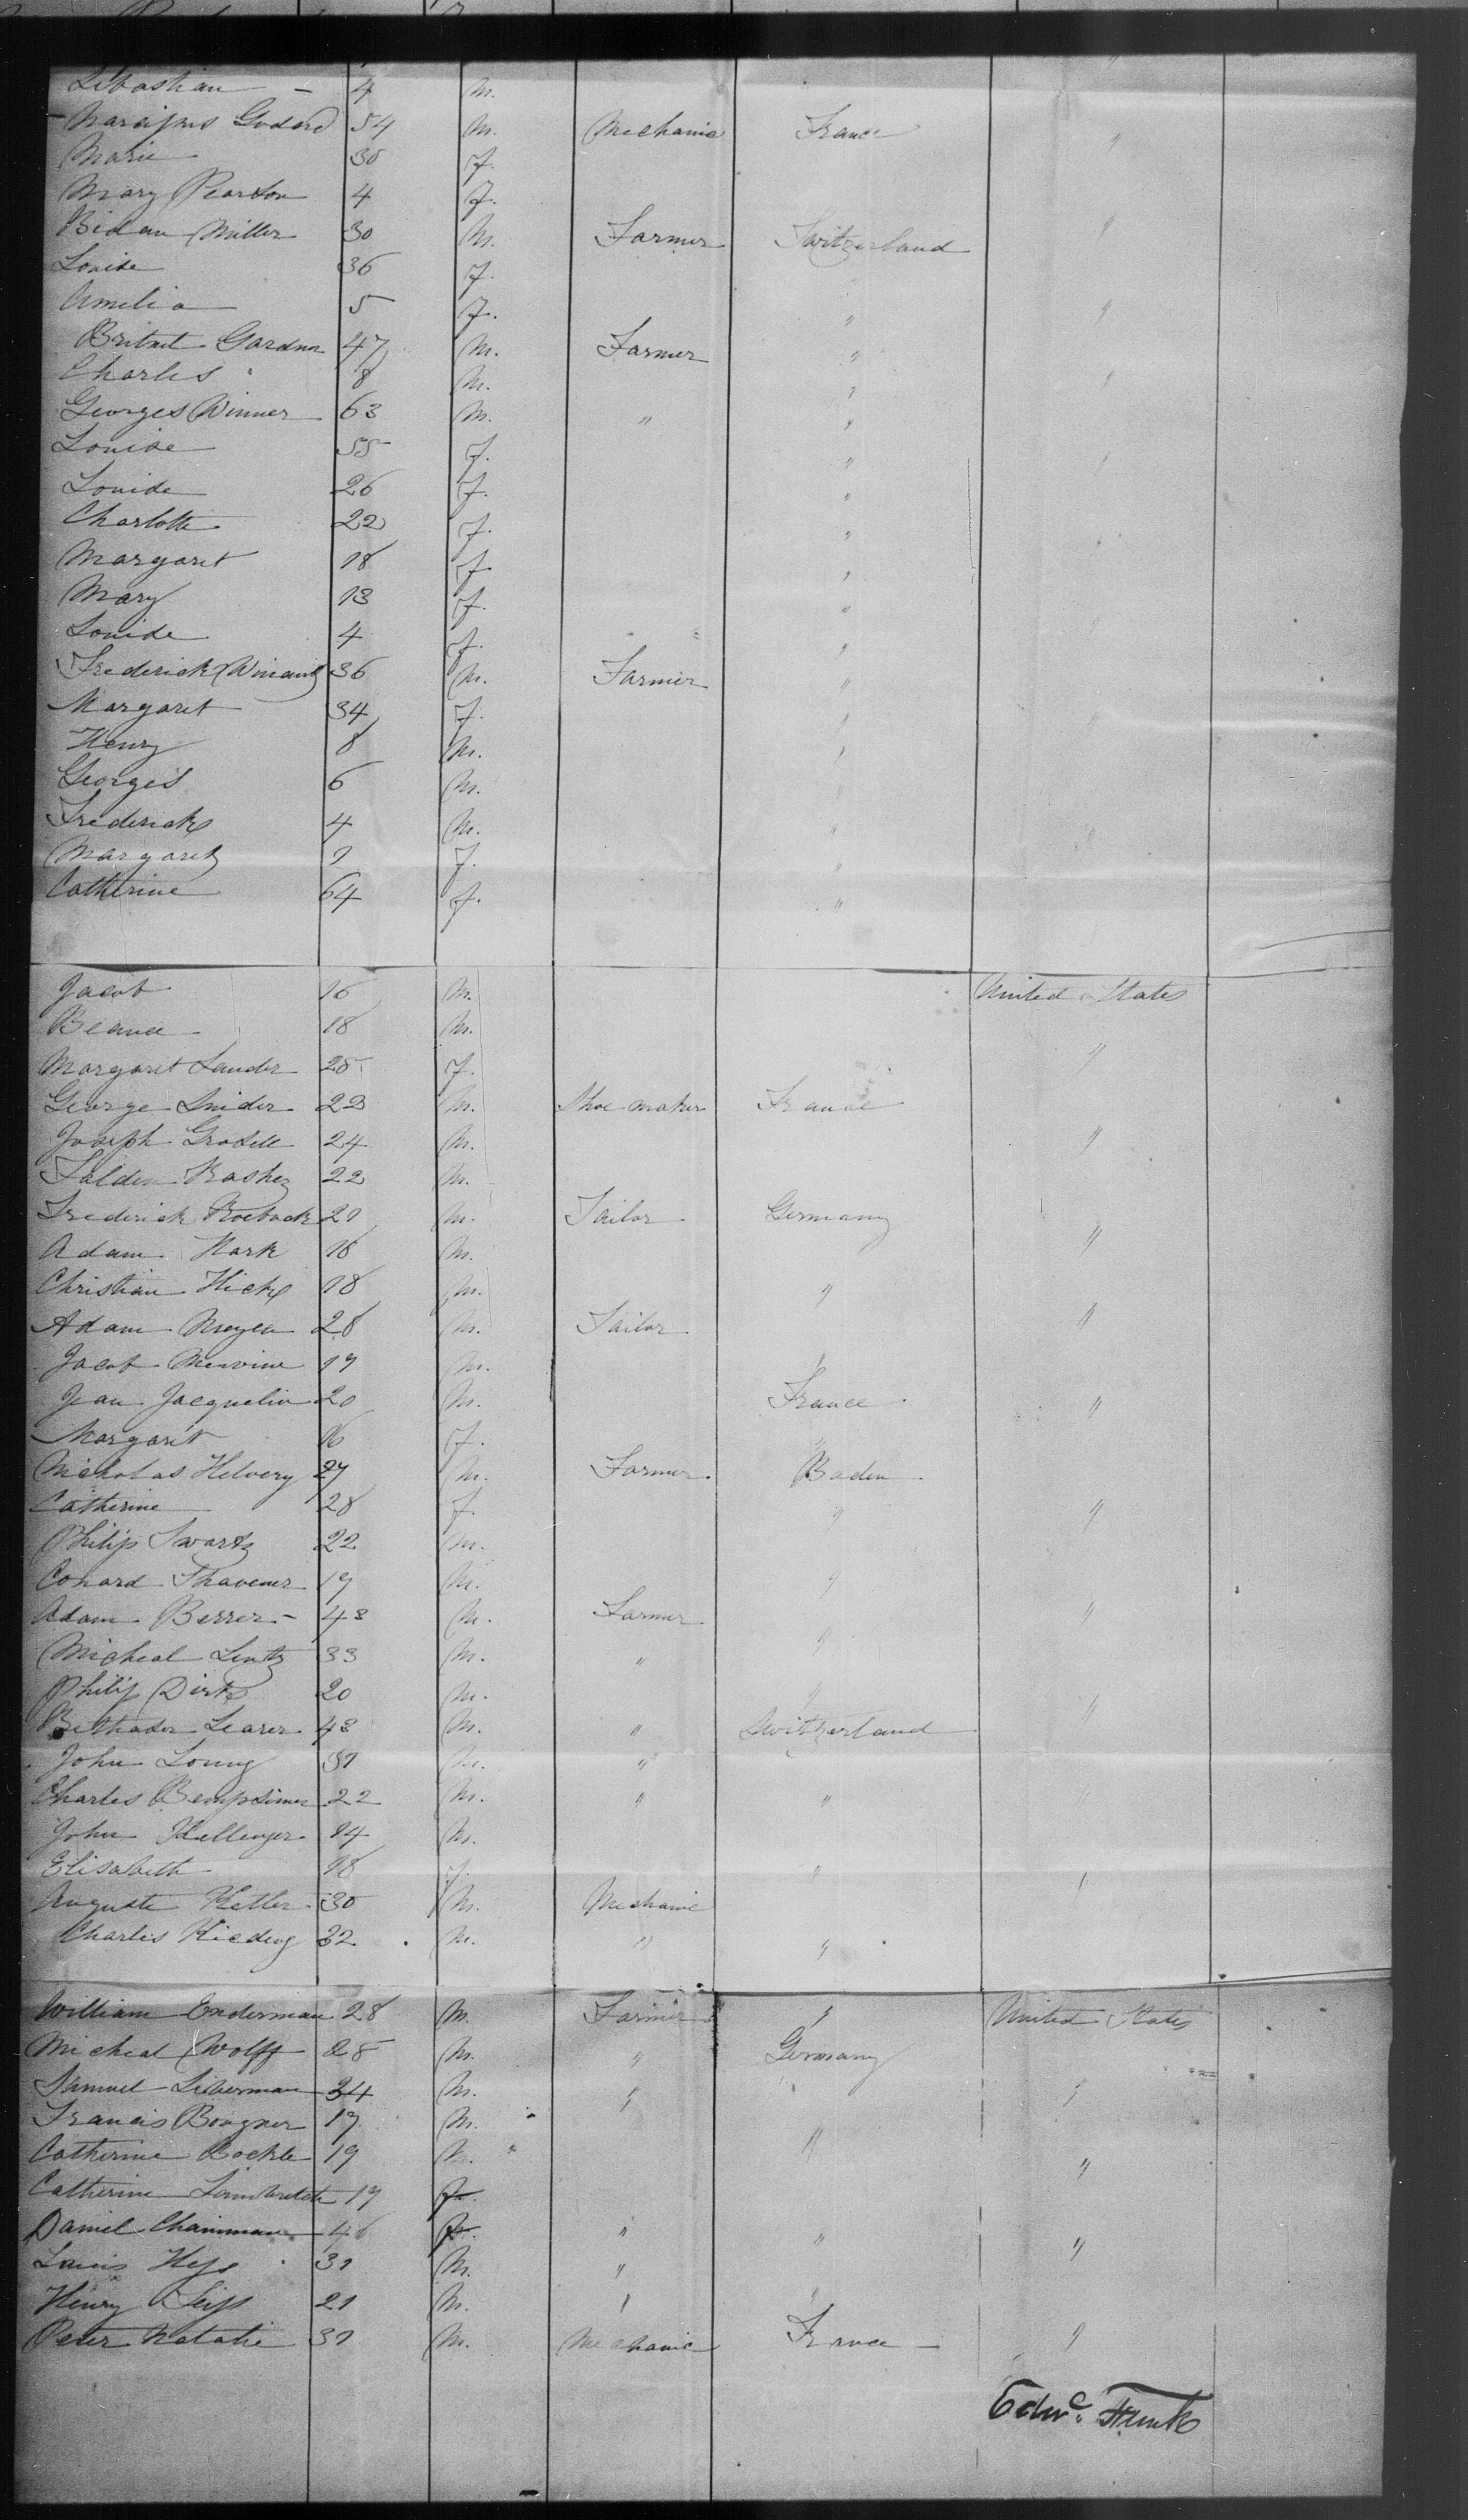 Sebastian – 4 M.
Narcisus Godard 54 M. Mechanic France "
Marie 30 F.
Mary Pearson 4 F.
Bidau Miller 30 M. Farmer Switzerland "
Louise 36 F.
Amelia 5 F. " "
Gardner 47 M. Farmer "
Charles 8 M. " "
Georges Winner 63 M. " "
Louise 55 F. " "
Louise 26 F. "
Charlotte 22 F. "
Margaret 18 F. "
Mary 13 F. "
Louise 4 F. "
Frederick 36 M. Farmer "
Margaret 34 F. " "
Henry 8 M. "
Georges 6 M. "
Frederick 4 M. " "
Margaret 1 F. "
Catherine 64 F. "
Jacob 16 M. United States
18 M.
Margaret Sauder 25 F. "
George Snider 22 M. Shoe maker France
Joseph Grosell 24 M. "
22 M.
Frederick Roebuck 21 M. Tailor Germany "
Adam Hark 16 M.
Christian Hick 18 M. "
Adam Meyer 28 M. Tailor "
Jacob Mervine 19 M. "
Jean Jacquelin 20 M. France "
Margaret 16 F.
Nicholas Helvery 27 M. Farmer Baden
Catherine 28 F. " "
Philip Swartz 22 M.
Conard Thavener 19 M. "
Adam Berrer – 43 M. Farmer "
Micheal Lentz 33 M. " "
Philip Dirk 20 M. "
Learer 43 M. " Switzerland
John Loung 31 M. "
Charles 22 M. " "
John Hellenger 14 M.
Elisabeth 18 F. "
Auguste Keller 30 M. Mechanic "
Charles Kieding 32 M. " "
William Enderman 28 M. Farmer " United States
Micheal Wolff 28 M. " Germany
Samuel Liberman 34 M. " "
Francis Bougner 19 M. "
Catherine Bockle 19 M. "
Catherine Lambretch 19 F.
Daniel Chainman 46 F. " " "
Louis Hess 31 M. "
Henry Seiss 21 M. " "
Peter Natalie 31 M. Mechanic France "
Edwd. Funk